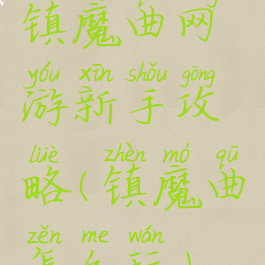 镇魔曲网
yóu xīn shǒu gōng
游新手攻
lüè zhèn mó qū
略(镇魔曲
zěn me wán
怎么玩)